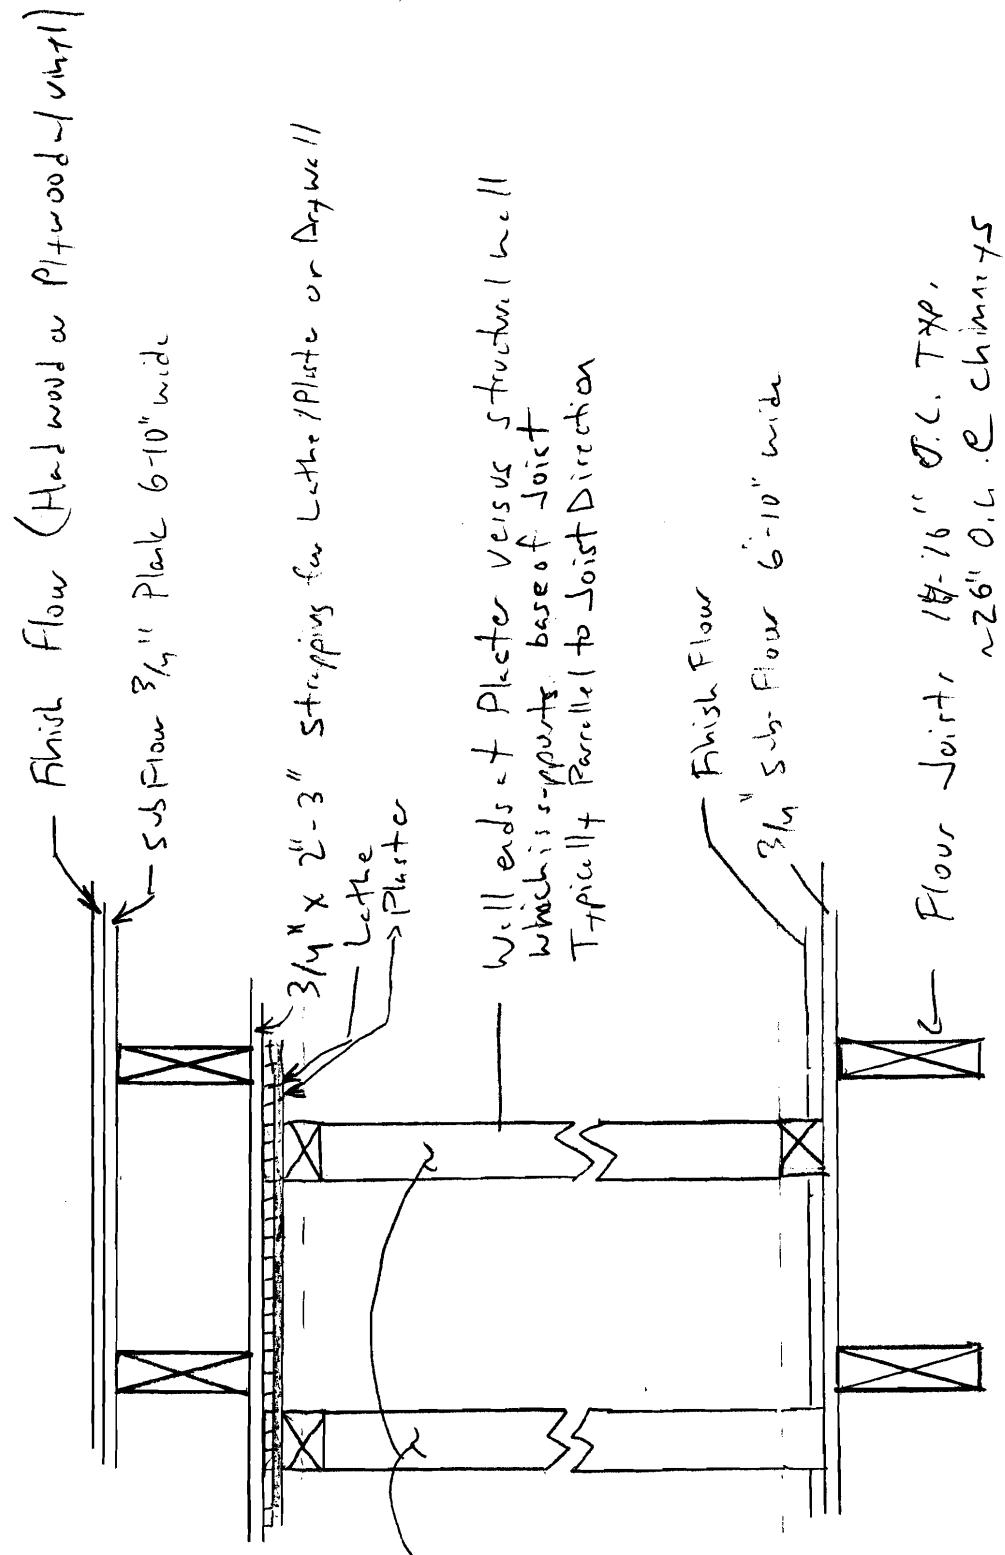 Finish Flour (Hadwood or Plywood w/ vinyl)
SubFlour 3/4" Plank 6-10" wide
3/4" x 2"-3" Strapping for Lathe/Plaster or Drywall
Lathe
Plaster
Wall ends at Plaster versus structural wall
which is supports base of Joist
Typically Parrallel to Joist Direction
Finish Flour
3/4" Sub-Flour 6-10" wide
Flour Joists 16" O.C. Typ.
~26" O.C. @ chimneys